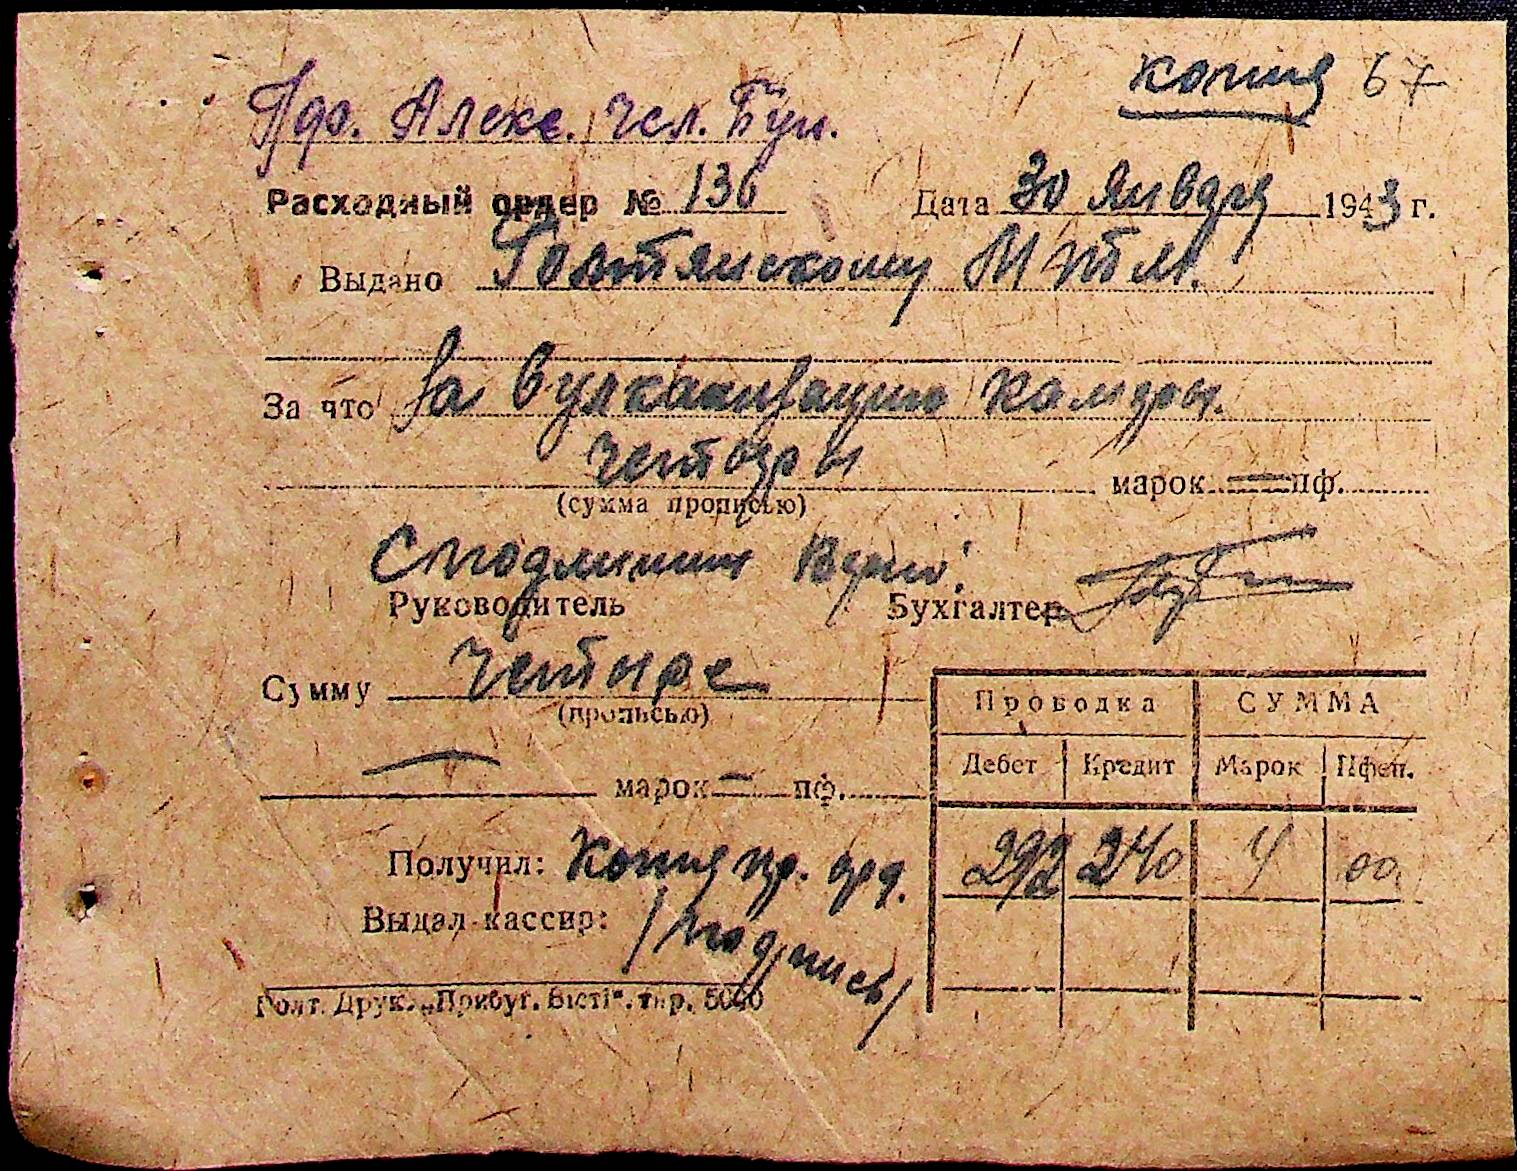 копия 67
Пфо. Алекс. Чсл. Бун.
Расходный ордер № 136 Дата 30 Января 1943 г.
Выдано Голтянскому МТМ.
За что За вулканизацию камеры.
четыры марок = пф.
(сумма прописью)
С подлинным верно:
Руководитель Бухгалтер
Сумму Четыре
(прописью)
— марок = пф.
Проводка СУММА
Дебет Кредит Марок Пфен.
292 240 4 00
Получил: Копия пр. орд.
Выдал кассир: /подпись/
Голт. Друк. „Прибуг. Вісті“. тир. 5000